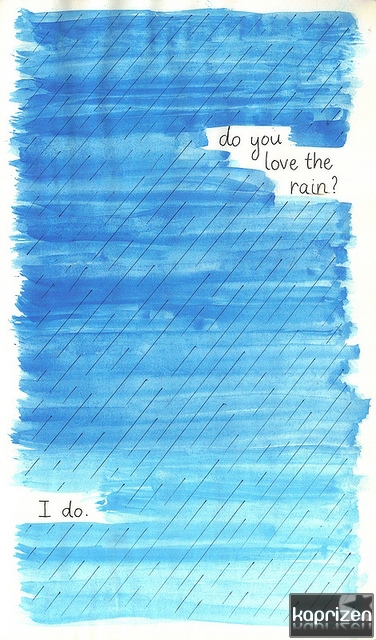 do you
love the
rain?
I do.
kaprizen